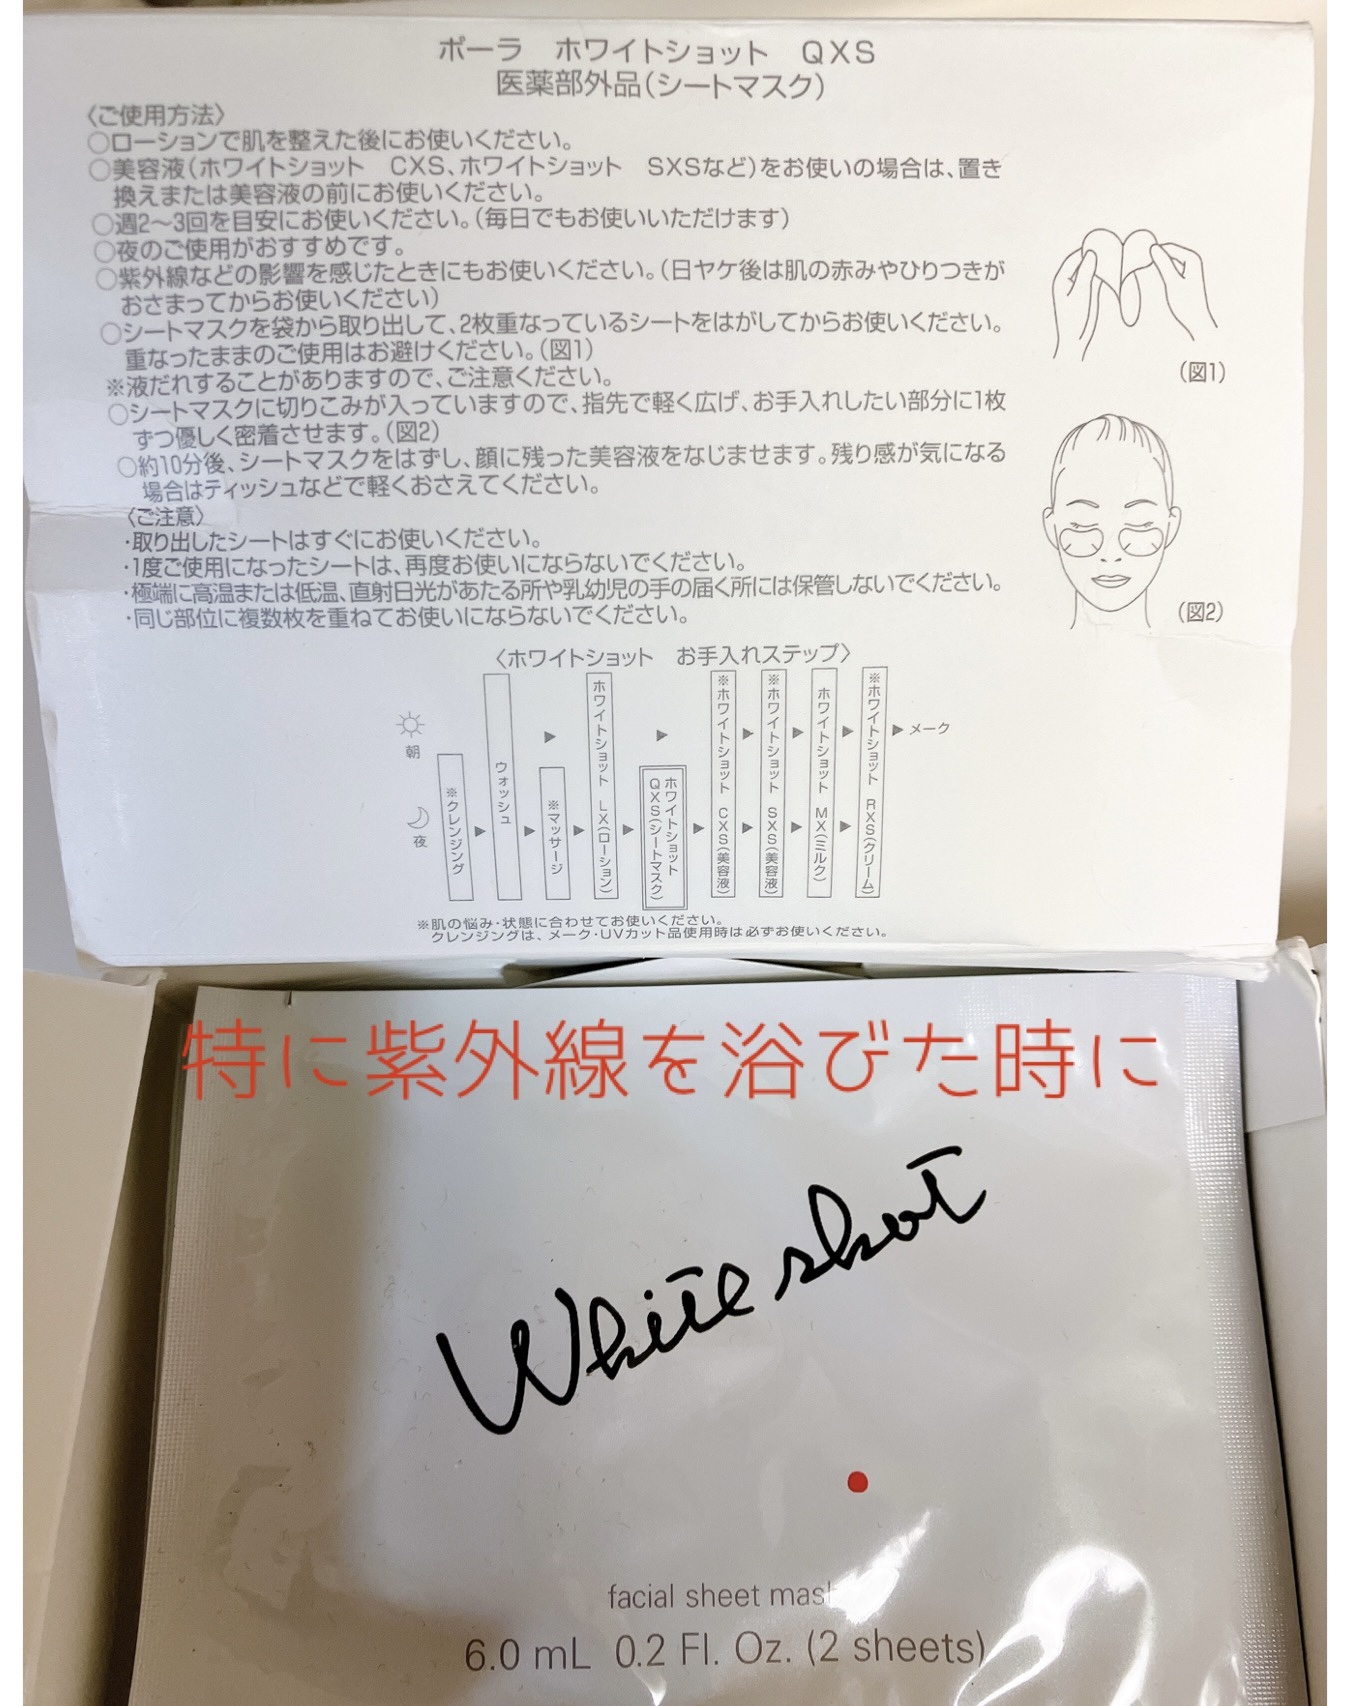 ポーラ　ホワイトショット　QXS
医薬部外品(シートマスク)
〈ご使用方法〉
○ローションで肌を整えた後にお使いください。
○美容液(ホワイトショット　CXS、ホワイトショット　SXSなど)をお使いの場合は、置き
換えまたは美容液の前にお使いください。
○週2〜3回を目安にお使いください。(毎日でもお使いいただけます)
○夜のご使用がおすすめです。
○紫外線などの影響を感じたときにもお使いください。(日ヤケ後は肌の赤みやひりつきが
おさまってからお使いください)
○シートマスクを袋から取り出して、2枚重なっているシートをはがしてからお使いください。
重なったままのご使用はお避けください。(図1)
※液だれすることがありますので、ご注意ください。
○シートマスクに切りこみが入っていますので、指先で軽く広げ、お手入れしたい部分に1枚
ずつ優しく密着させます。(図2)
○約10分後、シートマスクをはずし、顔に残った美容液をなじませます。残り感が気になる
場合はティッシュなどで軽くおさえてください。
〈ご注意〉
・取り出したシートはすぐにお使いください。
・1度ご使用になったシートは、再度お使いにならないでください。
・極端に高温または低温、直射日光があたる所や乳幼児の手の届く所には保管しないでください。
・同じ部位に複数枚を重ねてお使いにならないでください。
(図1)
(図2)
〈ホワイトショット　お手入れステップ〉
朝
夜
※クレンジング
ウォッシュ
※マッサージ
ホワイトショット　LX(ローション)
ホワイトショット
QXS(シートマスク)
※ホワイトショット　CXS(美容液)
※ホワイトショット　SXS(美容液)
ホワイトショット　MX(ミルク)
※ホワイトショット　RXS(クリーム)
メーク
※肌の悩み・状態に合わせてお使いください。
クレンジングは、メーク・UVカット品使用時は必ずお使いください。
特に紫外線を浴びた時に
White shot
facial sheet mask
6.0 mL 0.2 Fl. Oz. (2 sheets)